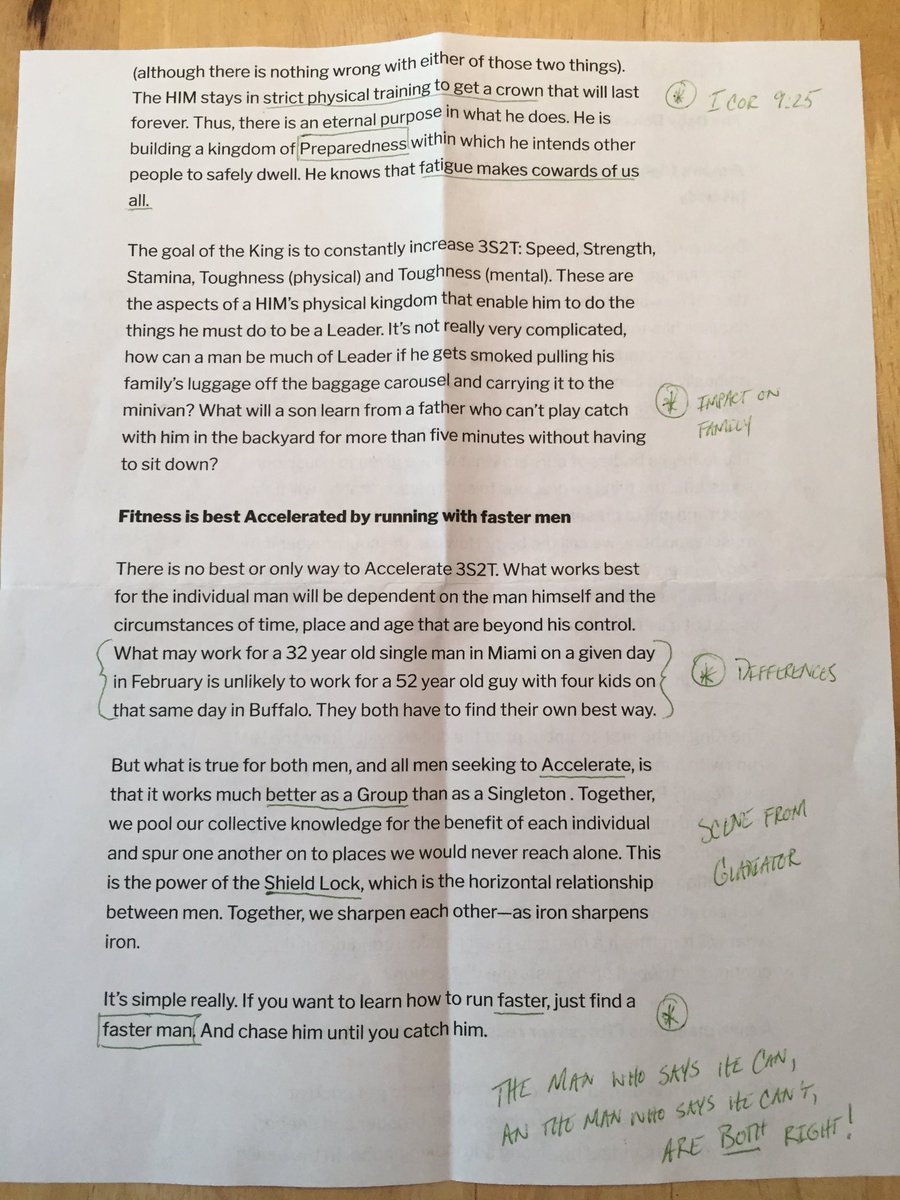 (although there is nothing wrong with either of those two things).
The HIM stays in strict physical training to get a crown that will last
forever. Thus, there is an eternal purpose in what he does. He is
building a kingdom of Preparedness within which he intends other
people to safely dwell. He knows that fatigue makes cowards of us
all.
I COR 9:25
The goal of the King is to constantly increase 3S2T: Speed, Strength,
Stamina, Toughness (physical) and Toughness (mental). These are
the aspects of a HIM's physical kingdom that enable him to do the
things he must do to be a Leader. It's not really very complicated,
how can a man be much of Leader if he gets smoked pulling his
family's luggage off the baggage carousel and carrying it to the
minivan? What will a son learn from a father who can't play catch
with him in the backyard for more than five minutes without having
to sit down?
IMPACT ON
FAMILY
Fitness is best Accelerated by running with faster men
There is no best or only way to Accelerate 3S2T. What works best
for the individual man will be dependent on the man himself and the
circumstances of time, place and age that are beyond his control.
What may work for a 32 year old single man in Miami on a given day
in February is unlikely to work for a 52 year old guy with four kids on
that same day in Buffalo. They both have to find their own best way.
DIFFERENCES
But what is true for both men, and all men seeking to Accelerate, is
that it works much better as a Group than as a Singleton . Together,
we pool our collective knowledge for the benefit of each individual
and spur one another on to places we would never reach alone. This
is the power of the Shield Lock, which is the horizontal relationship
between men. Together, we sharpen each other—as iron sharpens
iron.
SCENE FROM
GLADIATOR
It's simple really. If you want to learn how to run faster, just find a
faster man. And chase him until you catch him.
THE MAN WHO SAYS HE CAN,
AN THE MAN WHO SAYS HE CAN'T,
ARE BOTH RIGHT!